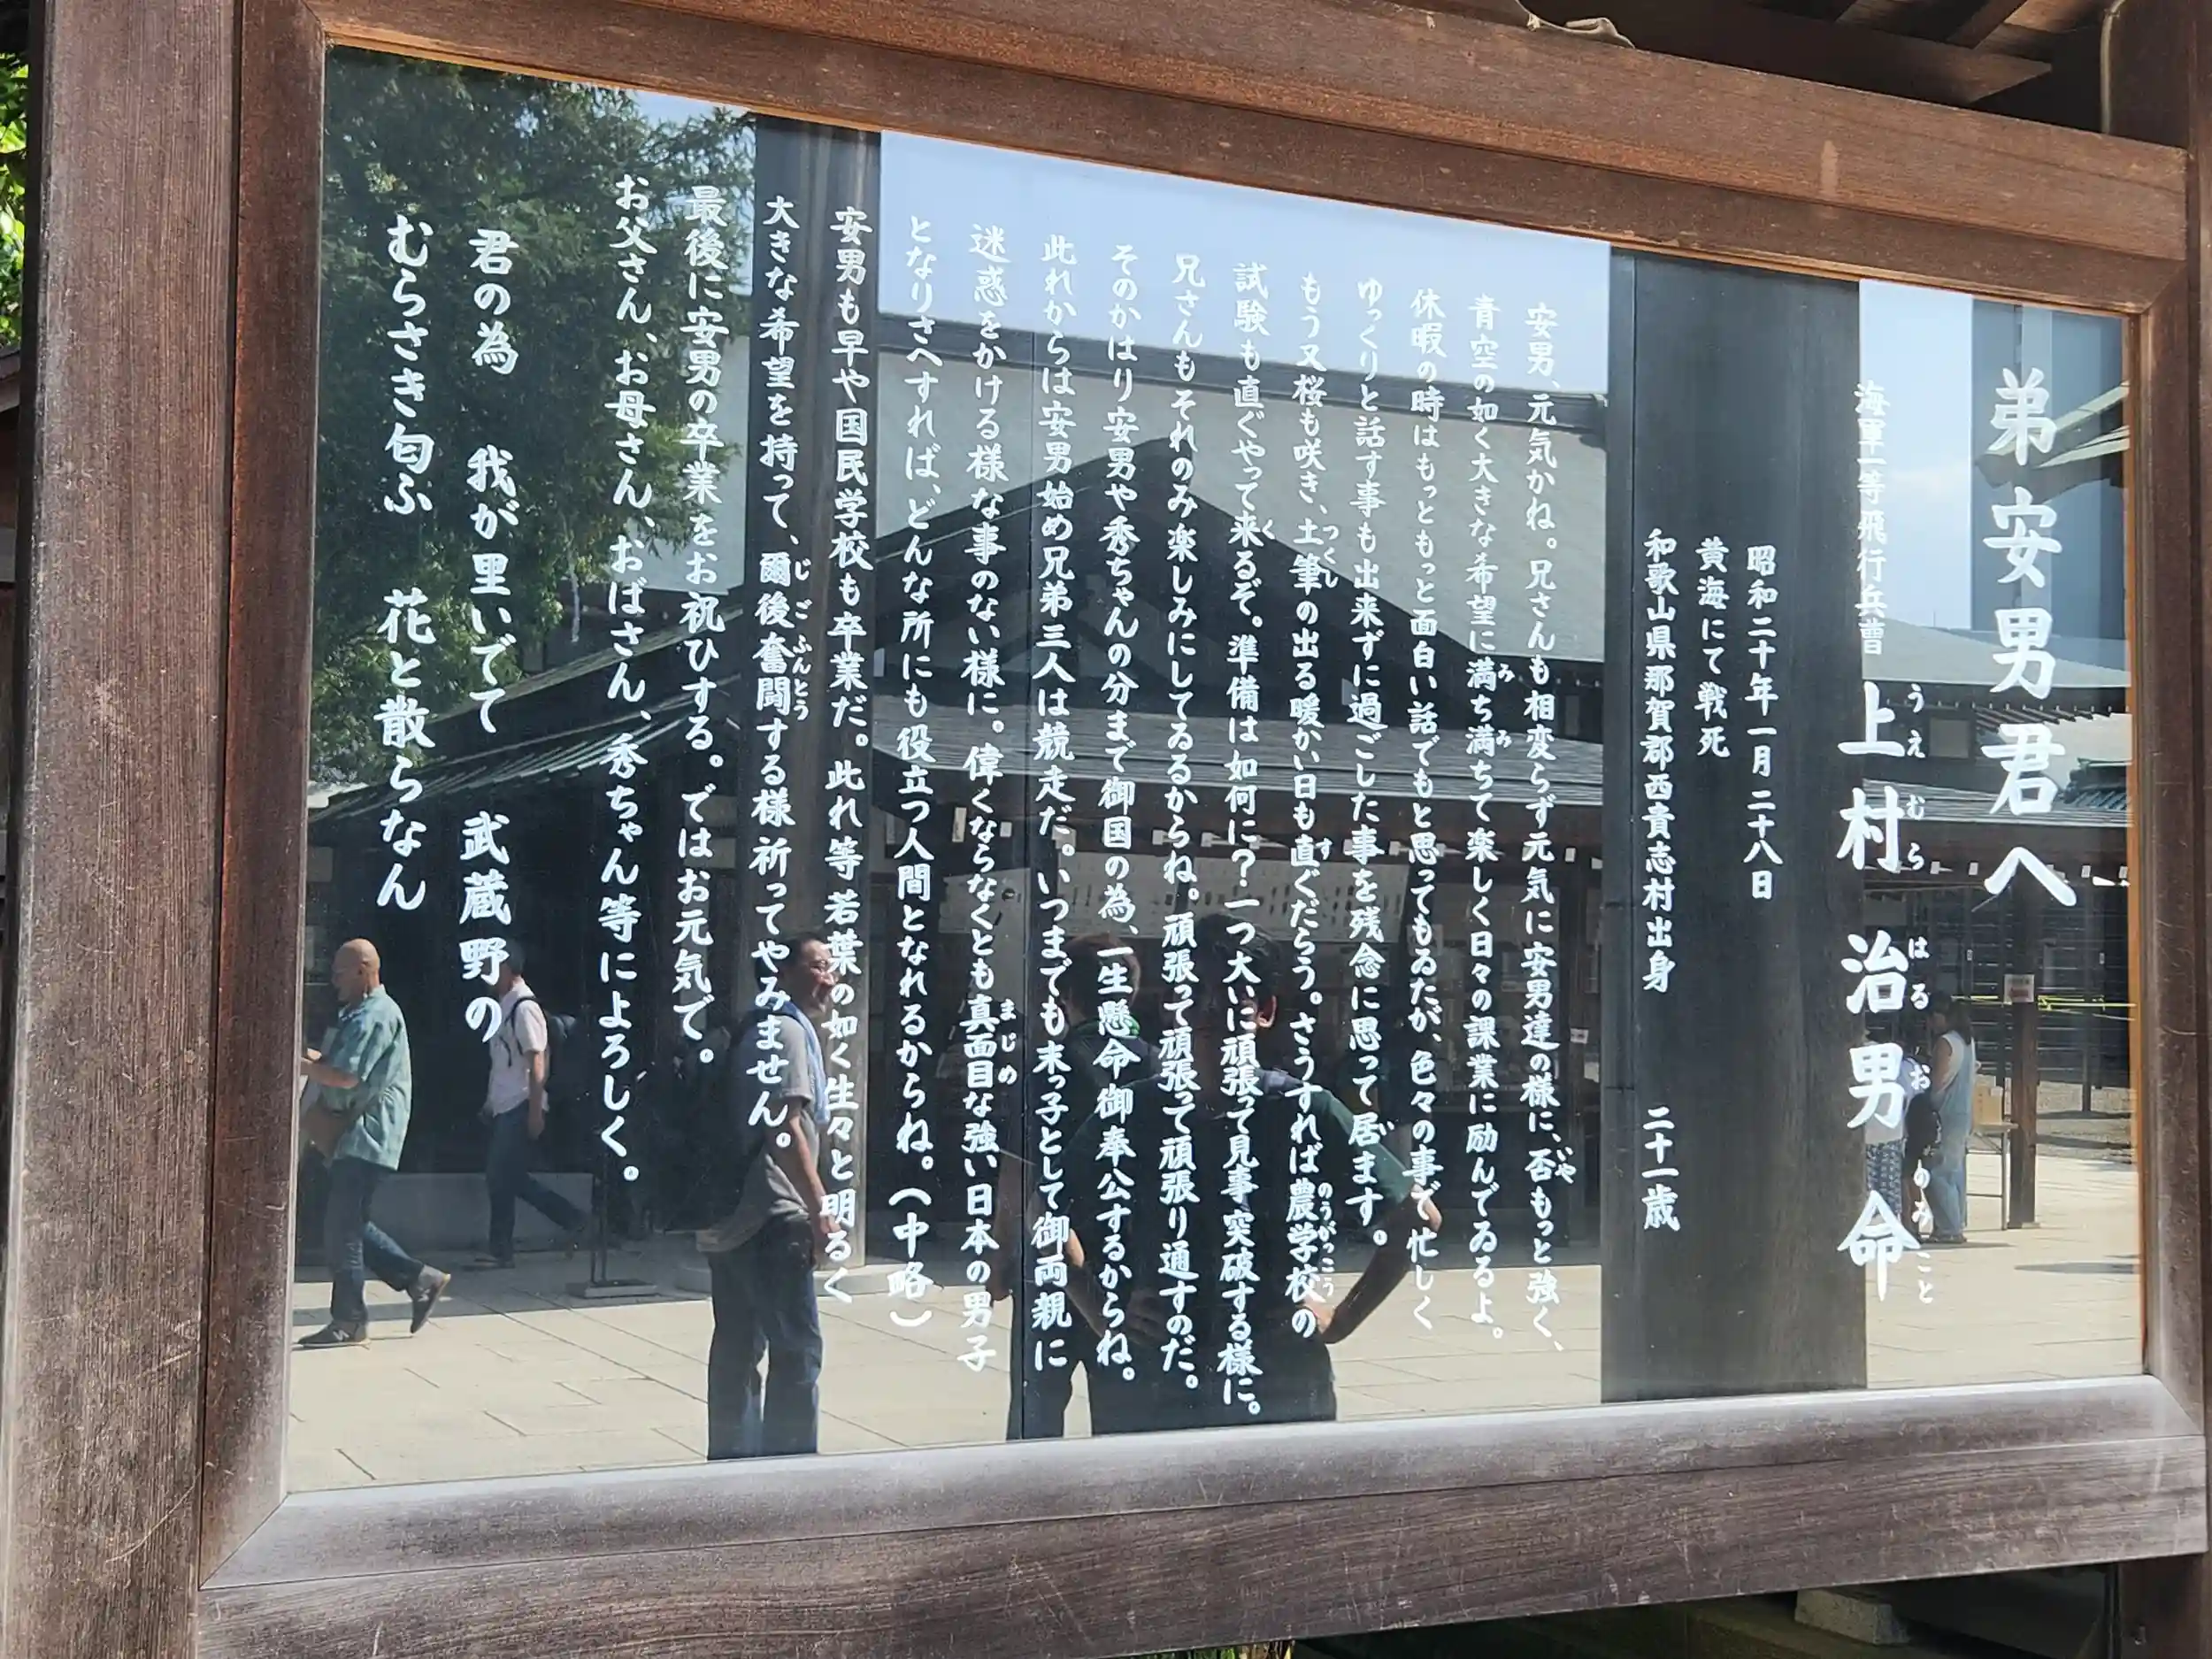 弟安男君へ
海軍一等飛行兵曹 上村治男命
うえ むら はる お の みこと
昭和二十年一月二十八日
黄海にて戦死
和歌山県那賀郡西貴志村出身 二十一歳
安男、元気かね。兄さんも相変らず元気に安男達の様に、否もっと強く、
いや
青空の如く大きな希望に満ち満ちて楽しく日々の課業に励んでゐるよ。
み み
休暇の時はもっともっと面白い話でもと思ってもゐたが、色々の事で忙しく
ゆっくりと話す事も出来ずに過ごした事を残念に思って居ます。
もう又桜も咲き、土筆の出る暖かい日も直ぐだらう。さうすれば農学校の
つくし す のうがっこう
試験も直ぐやって来るぞ。準備は如何に?一つ大いに頑張って見事突破する様に。
く
兄さんもそれのみ楽しみにしてゐるからね。頑張って頑張って頑張り通すのだ。
そのかはり安男や秀ちゃんの分まで御国の為、一生懸命御奉公するからね。
此れからは安男始め兄弟三人は競走だ。いつまでも末っ子として御両親に
迷惑をかける様な事のない様に。偉くならなくとも真面目な強い日本の男子
まじめ
となりさへすれば、どんな所にも役立つ人間となれるからね。(中略)
安男も早や国民学校も卒業だ。此れ等若葉の如く生々と明るく
大きな希望を持って、爾後奮闘する様祈ってやみません。
じごふんとう
最後に安男の卒業をお祝ひする。ではお元気で。
お父さん、お母さん、おばさん、秀ちゃん等によろしく。
君の為 我が里いでて 武蔵野の
むらさき匂ふ 花と散らなん